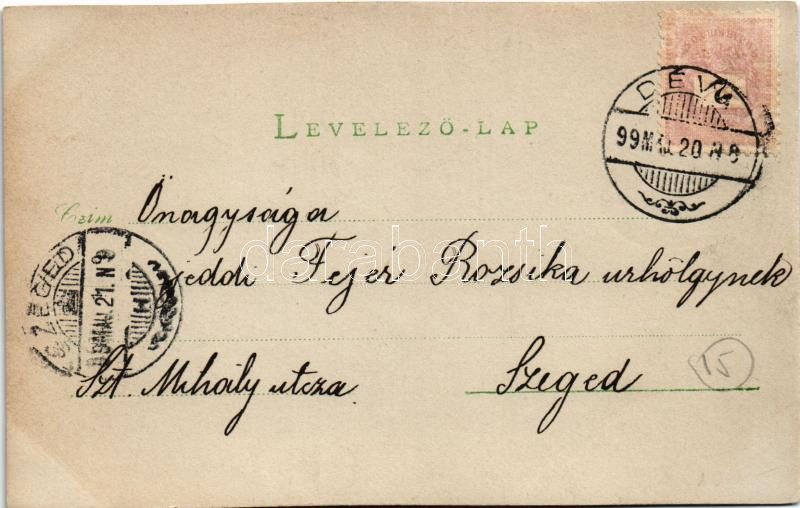 LEVELEZŐ-LAP
DÉVA
99 MÁJ. 20 N 8
Czim Őnagysága
jeddi Fejér Rozsika urhölgynek
SZEGED
99 MÁJ. 21. N 9
Szt Mihály utcza Szeged
15
darabanth